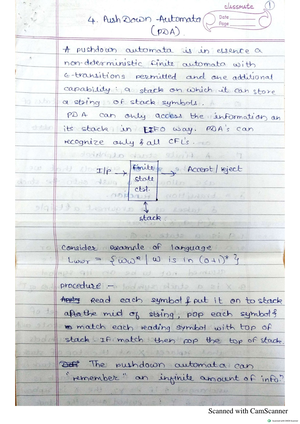 classmate
Date
Page
1
4. PushDown Automata
(PDA)
A pushdown automata is in essence a
non-deterministic finite automata with
ε-transitions permitted and one additional
capability: a stack on which it can store
a string of stack symbols.
PDA can only access the information on
its stack in LIFO way. PDA's can
recognize only & all CFL's.
I/P → finite → Accept/reject
state
ctrl.
stack
Consider example of language
Lwwr = { ww^R | w is in (0+1)* }
procedure :-
Read each symbol & put it on to stack
after the mid of string, pop each symbol &
match each reading symbol with top of
stack. If match then pop the top of stack.
The pushdown automata can
"remember" an infinite amount of info"
Scanned with CamScanner